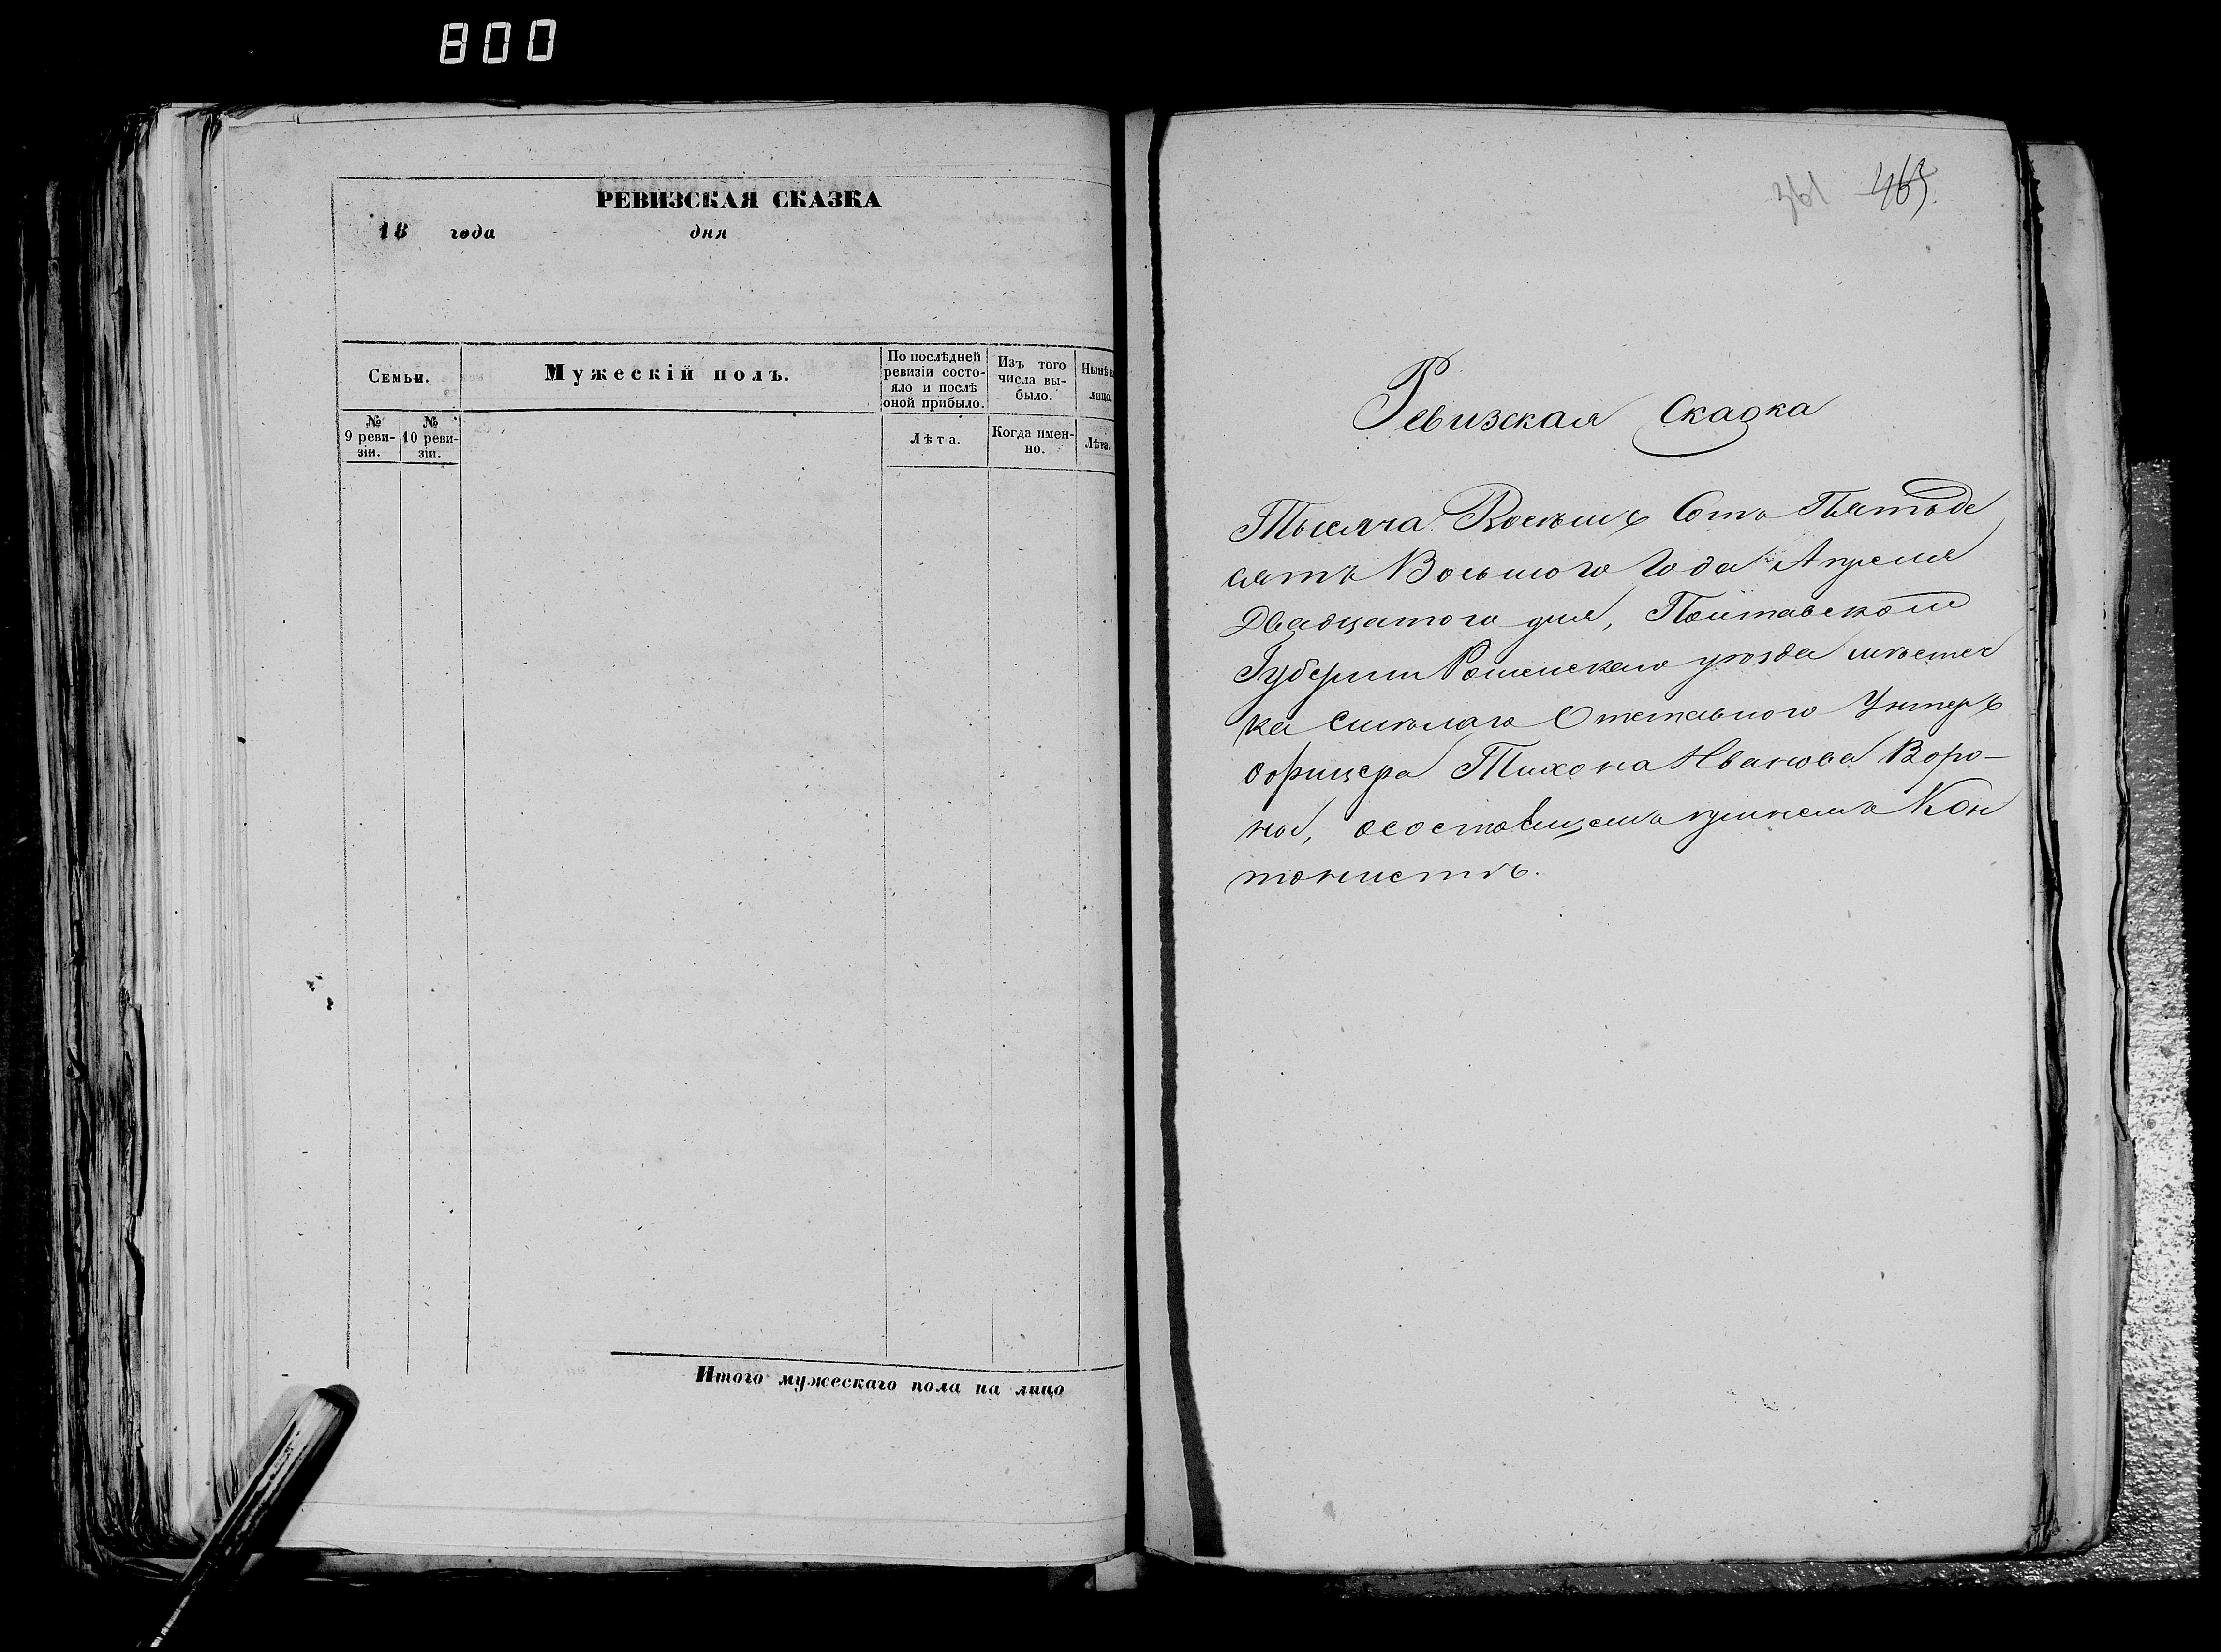 800
РЕВИЗСКАЯ СКАЗКА
18 года дня
Семьи.
Мужескій полъ.
По послѣдней
ревизіи состо-
яло и послѣ
оной прибыло.
Изъ того
числа вы-
было.
Нынѣ на
лицо.
№
9 реви-
зіи.
№
10 реви-
зіи.
Лѣта.
Когда имен-
но.
Лѣта.
Итого мужескаго пола на лицо
361 465
Ревизская Сказка
Тысяча Восемь Сотъ Пятьде
сятъ Восьмого Года Апреля
Двадцатого дня, Полтавской
Губерніи Роменскаго уѣзда мѣстеч
ка Смѣлаго Отставного Унтеръ
офицера Тихона Иванова Воро-
ны, осостоящемъ примемъ Кон
тонистѣ.